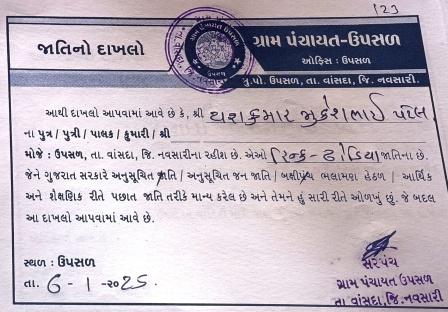 123
જાતિનો દાખલો
ગ્રામ પંચાયત-ઉપસળ
ઓફિસ : ઉપસળ
મુ.પો. ઉપસળ, તા. વાંસદા, જિ. નવસારી.
આથી દાખલો આપવામાં આવે છે કે, શ્રી યશકુમાર મુકેશભાઈ પટેલ
ના પુત્ર / પુત્રી / પાલક / કુમારી / શ્રી
મોજે : ઉપસળ, તા. વાંસદા, જિ. નવસારીના રહીશ છે. એઓ હિન્દુ - ઢોડિયા જાતિના છે.
જેને ગુજરાત સરકારે અનુસૂચિત જાતિ / અનુસૂચિત જન જાતિ / બક્ષીપંચ ભલામણ હેઠળ / આર્થિક
અને શૈક્ષણિક રીતે પછાત જાતિ તરીકે માન્ય કરેલ છે અને તેમને હું સારી રીતે ઓળખું છું. જે બદલ
આ દાખલો આપવામાં આવે છે.
સ્થળ : ઉપસળ
તા. 6 - 1 -૨૦25.
સરપંચ
ગ્રામ પંચાયત ઉપસળ
તા વાંસદા,જિ.નવસારી